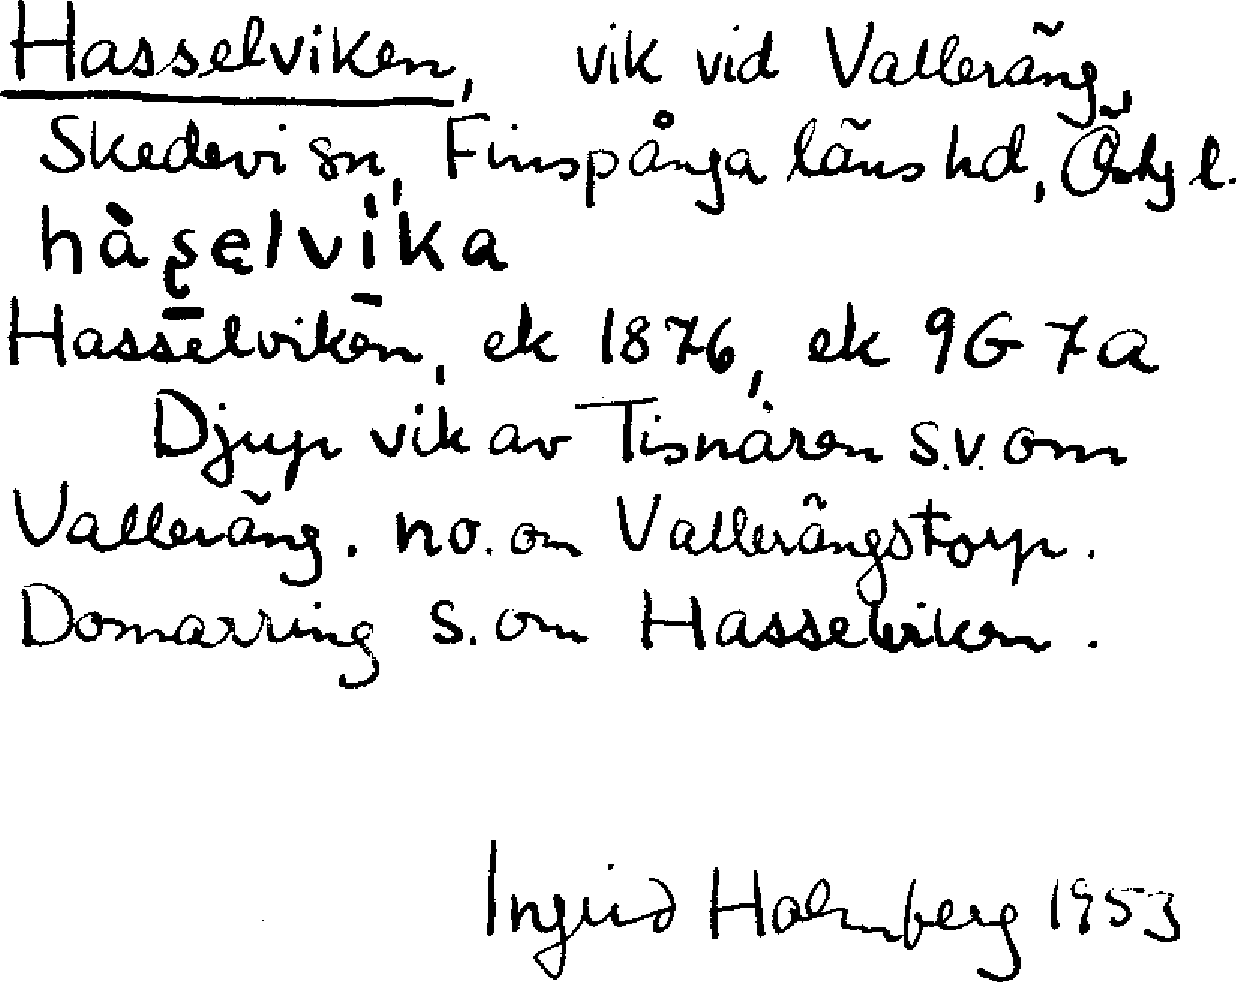 Hasselviken, vik vid Valleräng,
Skedevi sn, Finspånga läns hd, Östg l.
hàselvika
Hasselviken, ek 1876, ek 9G 7a
Djup vik av Tisnaren s.v. om
Valleräng. no. om Vallerängstorp.
Domarring s. om Hasselviken.
Ingrid Holmberg 1953